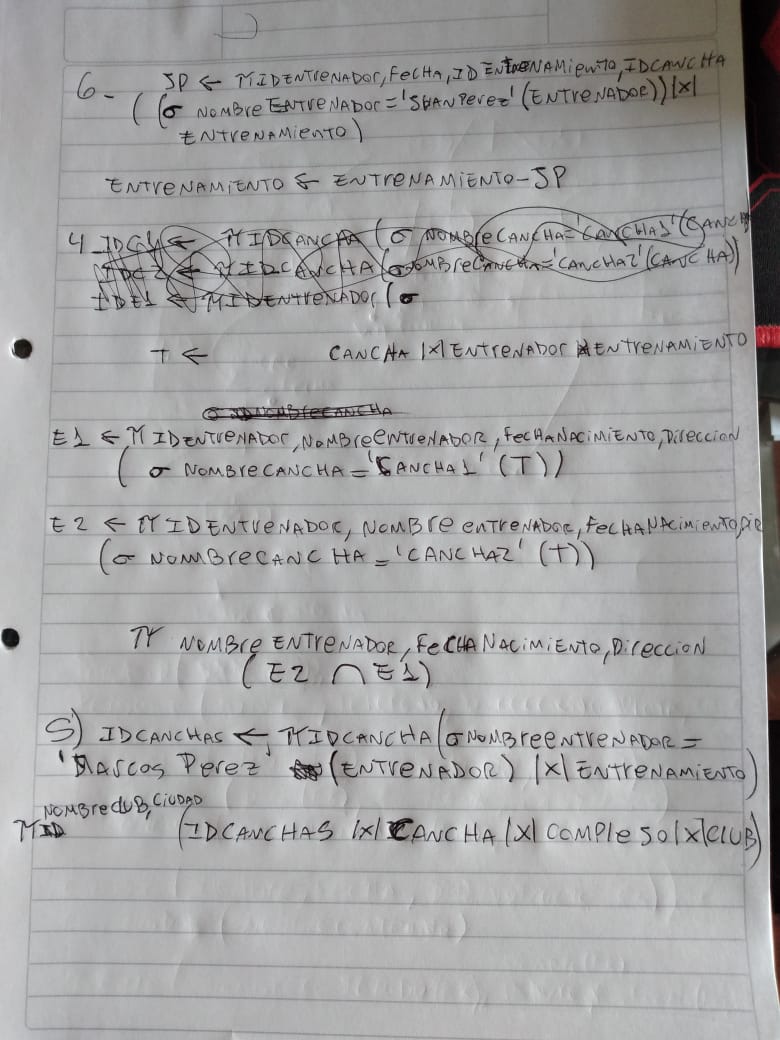 6- JP ← π IDENTrENADOR, FeCHA, IDENTreNAMieNTO, IDCANCHA
((σ NOMBre ENTreNADOR='JUANPerez' (ENTreNADOR)) |x|
ENTreNAMieNTO)
ENTreNAMIENTO ← ENTRENAMIENTO-JP
4 IDC1 ← π IDCANCHA (σ NOMBreCANCHA='CANCHA1' (CANCH
IDC2 ← π IDCANCHA (σ NOMBreCANCHA='CANCHA2' (CANCHA))
IDE1 ← π IDENtreNADOR (σ
T ← CANCHA |x| ENTreNADOR |x| ENTreNAMIENTO
σ NOMBreCANCHA
E1 ← π IDENTreNADOR, NOMBreeNTreNADOR, FeCHANACIMIENTO, DIreccion
(σ NOMBreCANCHA='CANCHA1' (T))
E2 ← π IDENTreNADOR, NOMBre eNTreNADOR, FeCHANACimieNTO, Dir
(σ NOMBreCANCHA='CANCHA2' (T))
π NOMBre ENTRENADOR, FeCHANACimieNTO, Direccion
(E2 ∩ E1)
5) IDCANCHAS ← π IDCANCHA (σ NOMBreeNTreNADOR =
'Marcos Perez' (ENTreNADOR) |x| ENTreNAMIENTO)
NOMBreclUB, CIUDAD
π (IDCANCHAS |x| CANCHA |x| COMPleJO |x| CLUB)